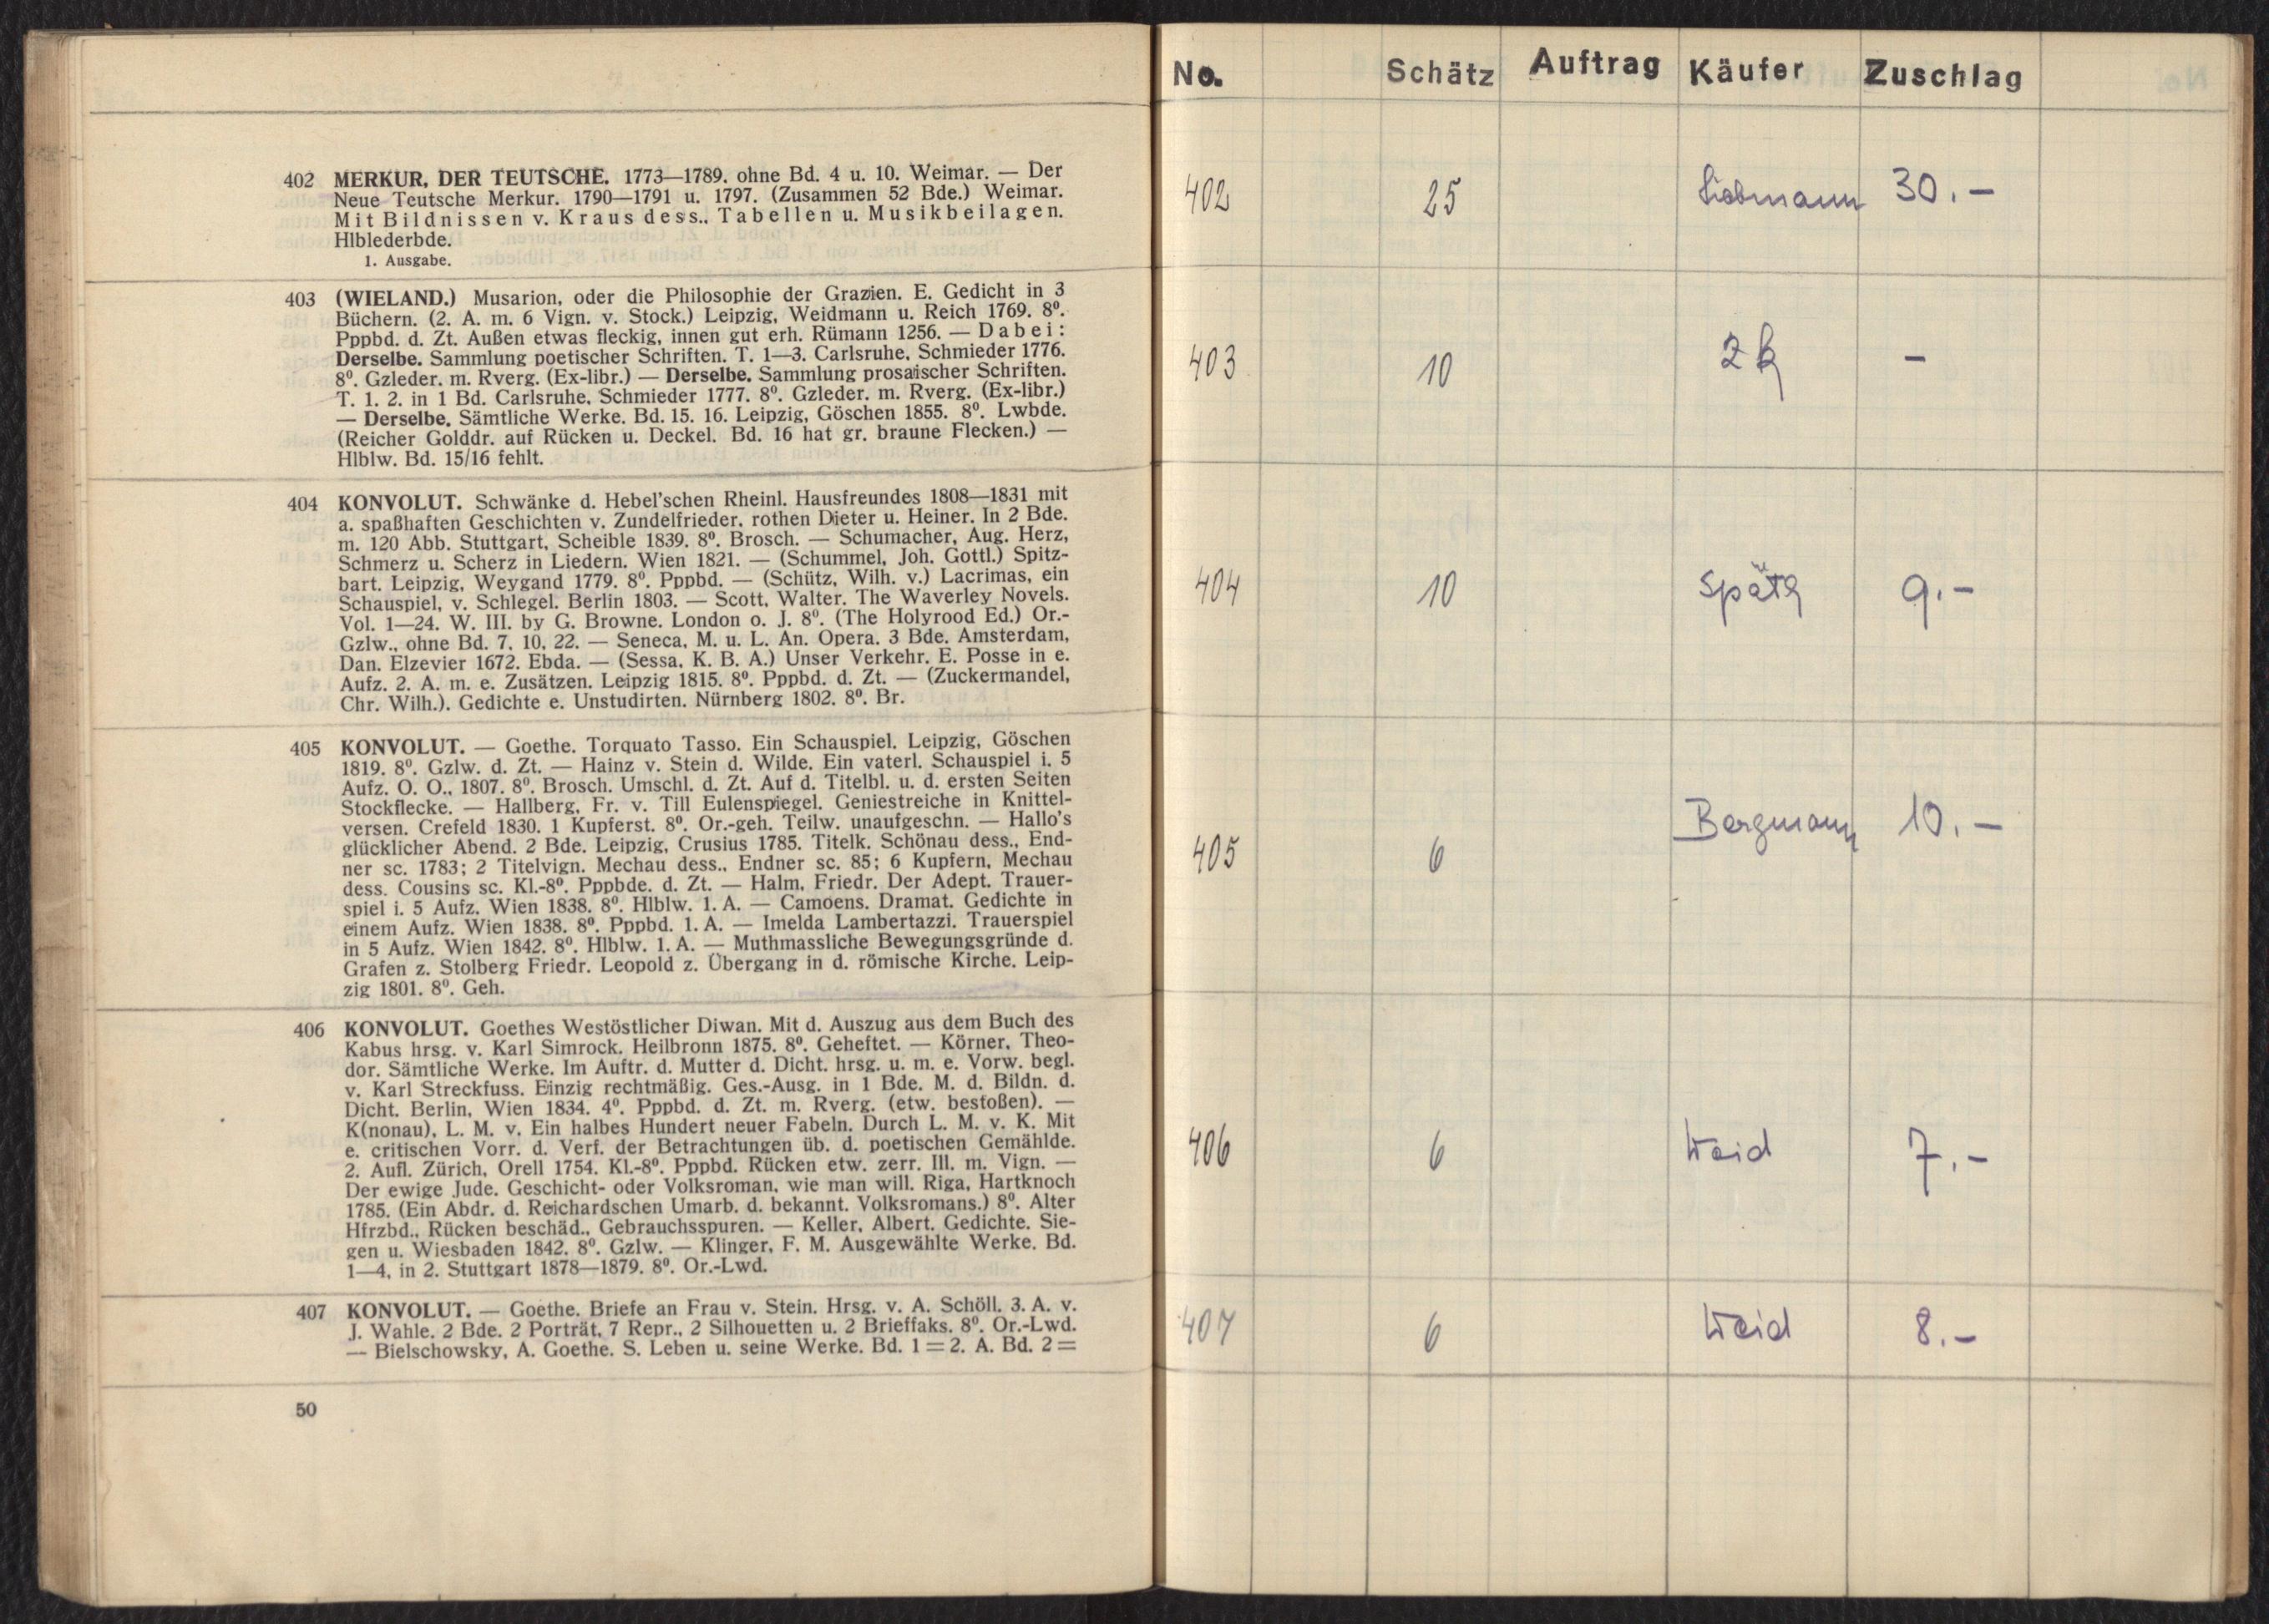 402 MERKUR, DER TEUTSCHE. 1773—1789. ohne Bd. 4 u. 10. Weimar. — Der
Neue Teutsche Merkur. 1790—1791 u. 1797. (Zusammen 52 Bde.) Weimar.
Mit Bildnissen v. Kraus dess., Tabellen u. Musikbeilagen.
Hlblederbde.
1. Ausgabe.
403 (WIELAND.) Musarion, oder die Philosophie der Grazien. E. Gedicht in 3
Büchern. (2. A. m. 6 Vign. v. Stock.) Leipzig, Weidmann u. Reich 1769. 8⁰.
Pppbd. d. Zt. Außen etwas fleckig, innen gut erh. Rümann 1256. — Dabei:
Derselbe. Sammlung poetischer Schriften. T. 1—3. Carlsruhe, Schmieder 1776.
8⁰. Gzleder. m. Rverg. (Ex-libr.) — Derselbe. Sammlung prosaischer Schriften.
T. 1. 2. in 1 Bd. Carlsruhe, Schmieder 1777. 8⁰. Gzleder. m. Rverg. (Ex-libr.)
— Derselbe. Sämtliche Werke. Bd. 15. 16. Leipzig, Göschen 1855. 8⁰. Lwbde.
(Reicher Golddr. auf Rücken u. Deckel. Bd. 16 hat gr. braune Flecken.) —
Hlblw. Bd. 15/16 fehlt.
404 KONVOLUT. Schwänke d. Hebel'schen Rheinl. Hausfreundes 1808—1831 mit
a. spaßhaften Geschichten v. Zundelfrieder, rothen Dieter u. Heiner. In 2 Bde.
m. 120 Abb. Stuttgart, Scheible 1839. 8⁰. Brosch. — Schumacher, Aug. Herz,
Schmerz u. Scherz in Liedern. Wien 1821. — (Schummel, Joh. Gottl.) Spitz-
bart. Leipzig, Weygand 1779. 8⁰. Pppbd. — (Schütz, Wilh. v.) Lacrimas, ein
Schauspiel, v. Schlegel. Berlin 1803. — Scott, Walter. The Waverley Novels.
Vol. 1—24. W. III. by G. Browne. London o. J. 8⁰. (The Holyrood Ed.) Or.-
Gzlw., ohne Bd. 7, 10, 22. — Seneca, M. u. L. An. Opera. 3 Bde. Amsterdam,
Dan. Elzevier 1672. Ebda. — (Sessa, K. B. A.) Unser Verkehr. E. Posse in e.
Aufz. 2. A. m. e. Zusätzen. Leipzig 1815. 8⁰. Pppbd. d. Zt. — (Zuckermandel,
Chr. Wilh.). Gedichte e. Unstudirten. Nürnberg 1802. 8⁰. Br.
405 KONVOLUT. — Goethe. Torquato Tasso. Ein Schauspiel. Leipzig, Göschen
1819. 8⁰. Gzlw. d. Zt. — Hainz v. Stein d. Wilde. Ein vaterl. Schauspiel i. 5
Aufz. O. O., 1807. 8⁰. Brosch. Umschl. d. Zt. Auf d. Titelbl. u. d. ersten Seiten
Stockflecke. — Hallberg, Fr. v. Till Eulenspiegel. Geniestreiche in Knittel-
versen. Crefeld 1830. 1 Kupferst. 8⁰. Or.-geh. Teilw. unaufgeschn. — Hallo's
glücklicher Abend. 2 Bde. Leipzig, Crusius 1785. Titelk. Schönau dess., End-
ner sc. 1783; 2 Titelvign. Mechau dess., Endner sc. 85; 6 Kupfern, Mechau
dess. Cousins sc. Kl.-8⁰. Pppbde. d. Zt. — Halm, Friedr. Der Adept. Trauer-
spiel i. 5 Aufz. Wien 1838. 8⁰. Hlblw. 1. A. — Camoens. Dramat. Gedichte in
einem Aufz. Wien 1838. 8⁰. Pppbd. 1. A. — Imelda Lambertazzi. Trauerspiel
in 5 Aufz. Wien 1842. 8⁰. Hlblw. 1. A. — Muthmassliche Bewegungsgründe d.
Grafen z. Stolberg Friedr. Leopold z. Übergang in d. römische Kirche. Leip-
zig 1801. 8⁰. Geh.
406 KONVOLUT. Goethes Westöstlicher Diwan. Mit d. Auszug aus dem Buch des
Kabus hrsg. v. Karl Simrock. Heilbronn 1875. 8⁰. Geheftet. — Körner, Theo-
dor. Sämtliche Werke. Im Auftr. d. Mutter d. Dicht. hrsg. u. m. e. Vorw. begl.
v. Karl Streckfuss. Einzig rechtmäßig. Ges.-Ausg. in 1 Bde. M. d. Bildn. d.
Dicht. Berlin, Wien 1834. 4⁰. Pppbd. d. Zt. m. Rverg. (etw. bestoßen). —
K(nonau), L. M. v. Ein halbes Hundert neuer Fabeln. Durch L. M. v. K. Mit
e. critischen Vorr. d. Verf. der Betrachtungen üb. d. poetischen Gemählde.
2. Aufl. Zürich, Orell 1754. Kl.-8⁰. Pppbd. Rücken etw. zerr. Ill. m. Vign. —
Der ewige Jude. Geschicht- oder Volksroman, wie man will. Riga, Hartknoch
1785. (Ein Abdr. d. Reichardschen Umarb. d. bekannt. Volksromans.) 8⁰. Alter
Hfrzbd., Rücken beschäd., Gebrauchsspuren. — Keller, Albert. Gedichte. Sie-
gen u. Wiesbaden 1842. 8⁰. Gzlw. — Klinger, F. M. Ausgewählte Werke. Bd.
1—4, in 2. Stuttgart 1878—1879. 8⁰. Or.-Lwd.
407 KONVOLUT. — Goethe. Briefe an Frau v. Stein. Hrsg. v. A. Schöll. 3. A. v.
J. Wahle. 2 Bde. 2 Porträt, 7 Repr., 2 Silhouetten u. 2 Brieffaks. 8⁰. Or.-Lwd.
— Bielschowsky, A. Goethe. S. Leben u. seine Werke. Bd. 1 = 2. A. Bd. 2 =
50
No. Schätz Auftrag Käufer Zuschlag
402 25 Liebmann 30.—
403 10 —
404 10 Späth 9.—
405 6 Bergmann 10.—
406 6 Weid 7.—
407 6 Weid 8.—